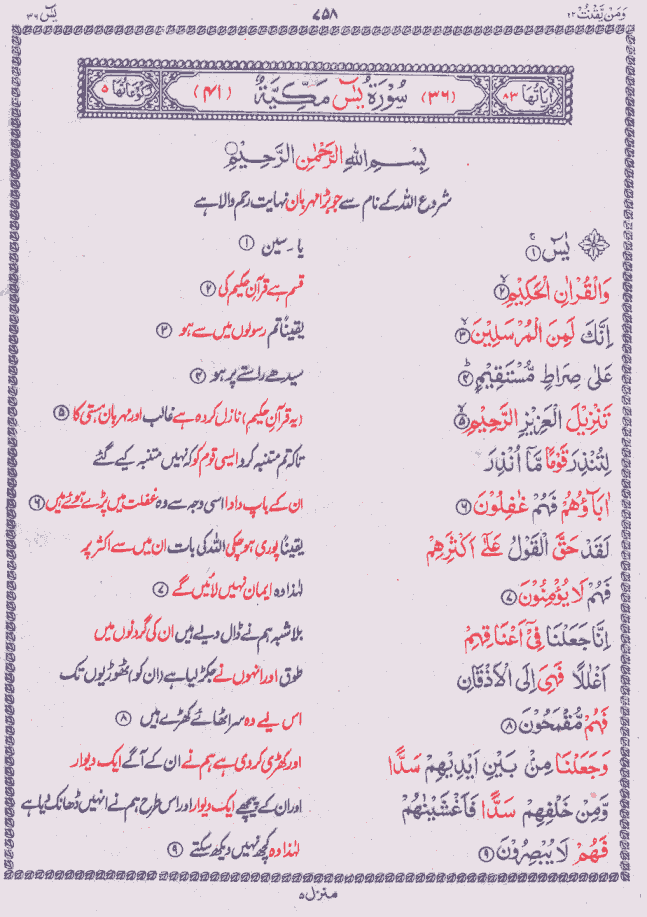 وَمَنْ يَّقْنُتْ ٢٢
٧٥٨
يٰسٓ ٣٦
اٰيَاتُهَا ٨٣
(٣٦) سُوْرَةُ يٰسٓ مَكِّيَّةٌ (٤١)
رُكُوْعَاتُهَا ٥
بِسْمِ اللّٰهِ الرَّحْمٰنِ الرَّحِيْمِ
شروع اللہ کے نام سے جو بڑا مہربان نہایت رحم والا ہے
يٰسٓ ۚ ﴿١﴾ یا ۔ سین ﴿۱﴾
وَالْقُرْاٰنِ الْحَكِيْمِ ۙ ﴿٢﴾ قسم ہے قرآنِ حکیم کی ﴿۲﴾
اِنَّكَ لَمِنَ الْمُرْسَلِيْنَ ۙ ﴿٣﴾ یقیناً تم رسولوں میں سے ہو ﴿۳﴾
عَلٰى صِرَاطٍ مُّسْتَقِيْمٍ ؕ ﴿٤﴾ سیدھے راستے پر ہو ﴿۴﴾
تَنْزِيْلَ الْعَزِيْزِ الرَّحِيْمِ ۙ ﴿٥﴾ (یہ قرآنِ حکیم) نازل کردہ ہے غالب اور مہربان ہستی کا ﴿۵﴾
لِتُنْذِرَ قَوْمًا مَّاۤ اُنْذِرَ تاکہ تم متنبہ کرو ایسی قوم کو کہ نہیں متنبہ کیے گئے
اٰبَآؤُهُمْ فَهُمْ غٰفِلُوْنَ ﴿٦﴾ ان کے باپ دادا اسی وجہ سے وہ غفلت میں پڑے ہوئے ہیں ﴿۶﴾
لَقَدْ حَقَّ الْقَوْلُ عَلٰۤى اَكْثَرِهِمْ یقیناً پوری ہو چکی اللہ کی بات ان میں سے اکثر پر
فَهُمْ لَا يُؤْمِنُوْنَ ﴿٧﴾ لہٰذا وہ ایمان نہیں لائیں گے ﴿۷﴾
اِنَّا جَعَلْنَا فِيْۤ اَعْنَاقِهِمْ بلاشبہ ہم نے ڈال دیے ہیں ان کی گردنوں میں
اَغْلٰلًا فَهِىَ اِلَى الْاَذْقَانِ طوق اور انہوں نے جکڑ لیا ہے (ان کو) ٹھوڑیوں تک
فَهُمْ مُّقْمَحُوْنَ ﴿٨﴾ اس لیے وہ سر اٹھائے کھڑے ہیں ﴿۸﴾
وَجَعَلْنَا مِنْۢ بَيْنِ اَيْدِيْهِمْ سَدًّا اور کھڑی کر دی ہے ہم نے ان کے آگے ایک دیوار
وَّمِنْ خَلْفِهِمْ سَدًّا فَاَغْشَيْنٰهُمْ اور ان کے پیچھے ایک دیوار اور اس طرح ہم نے انہیں ڈھانک دیا ہے
فَهُمْ لَا يُبْصِرُوْنَ ﴿٩﴾ لہٰذا وہ کچھ نہیں دیکھ سکتے ﴿۹﴾
منزل ٥